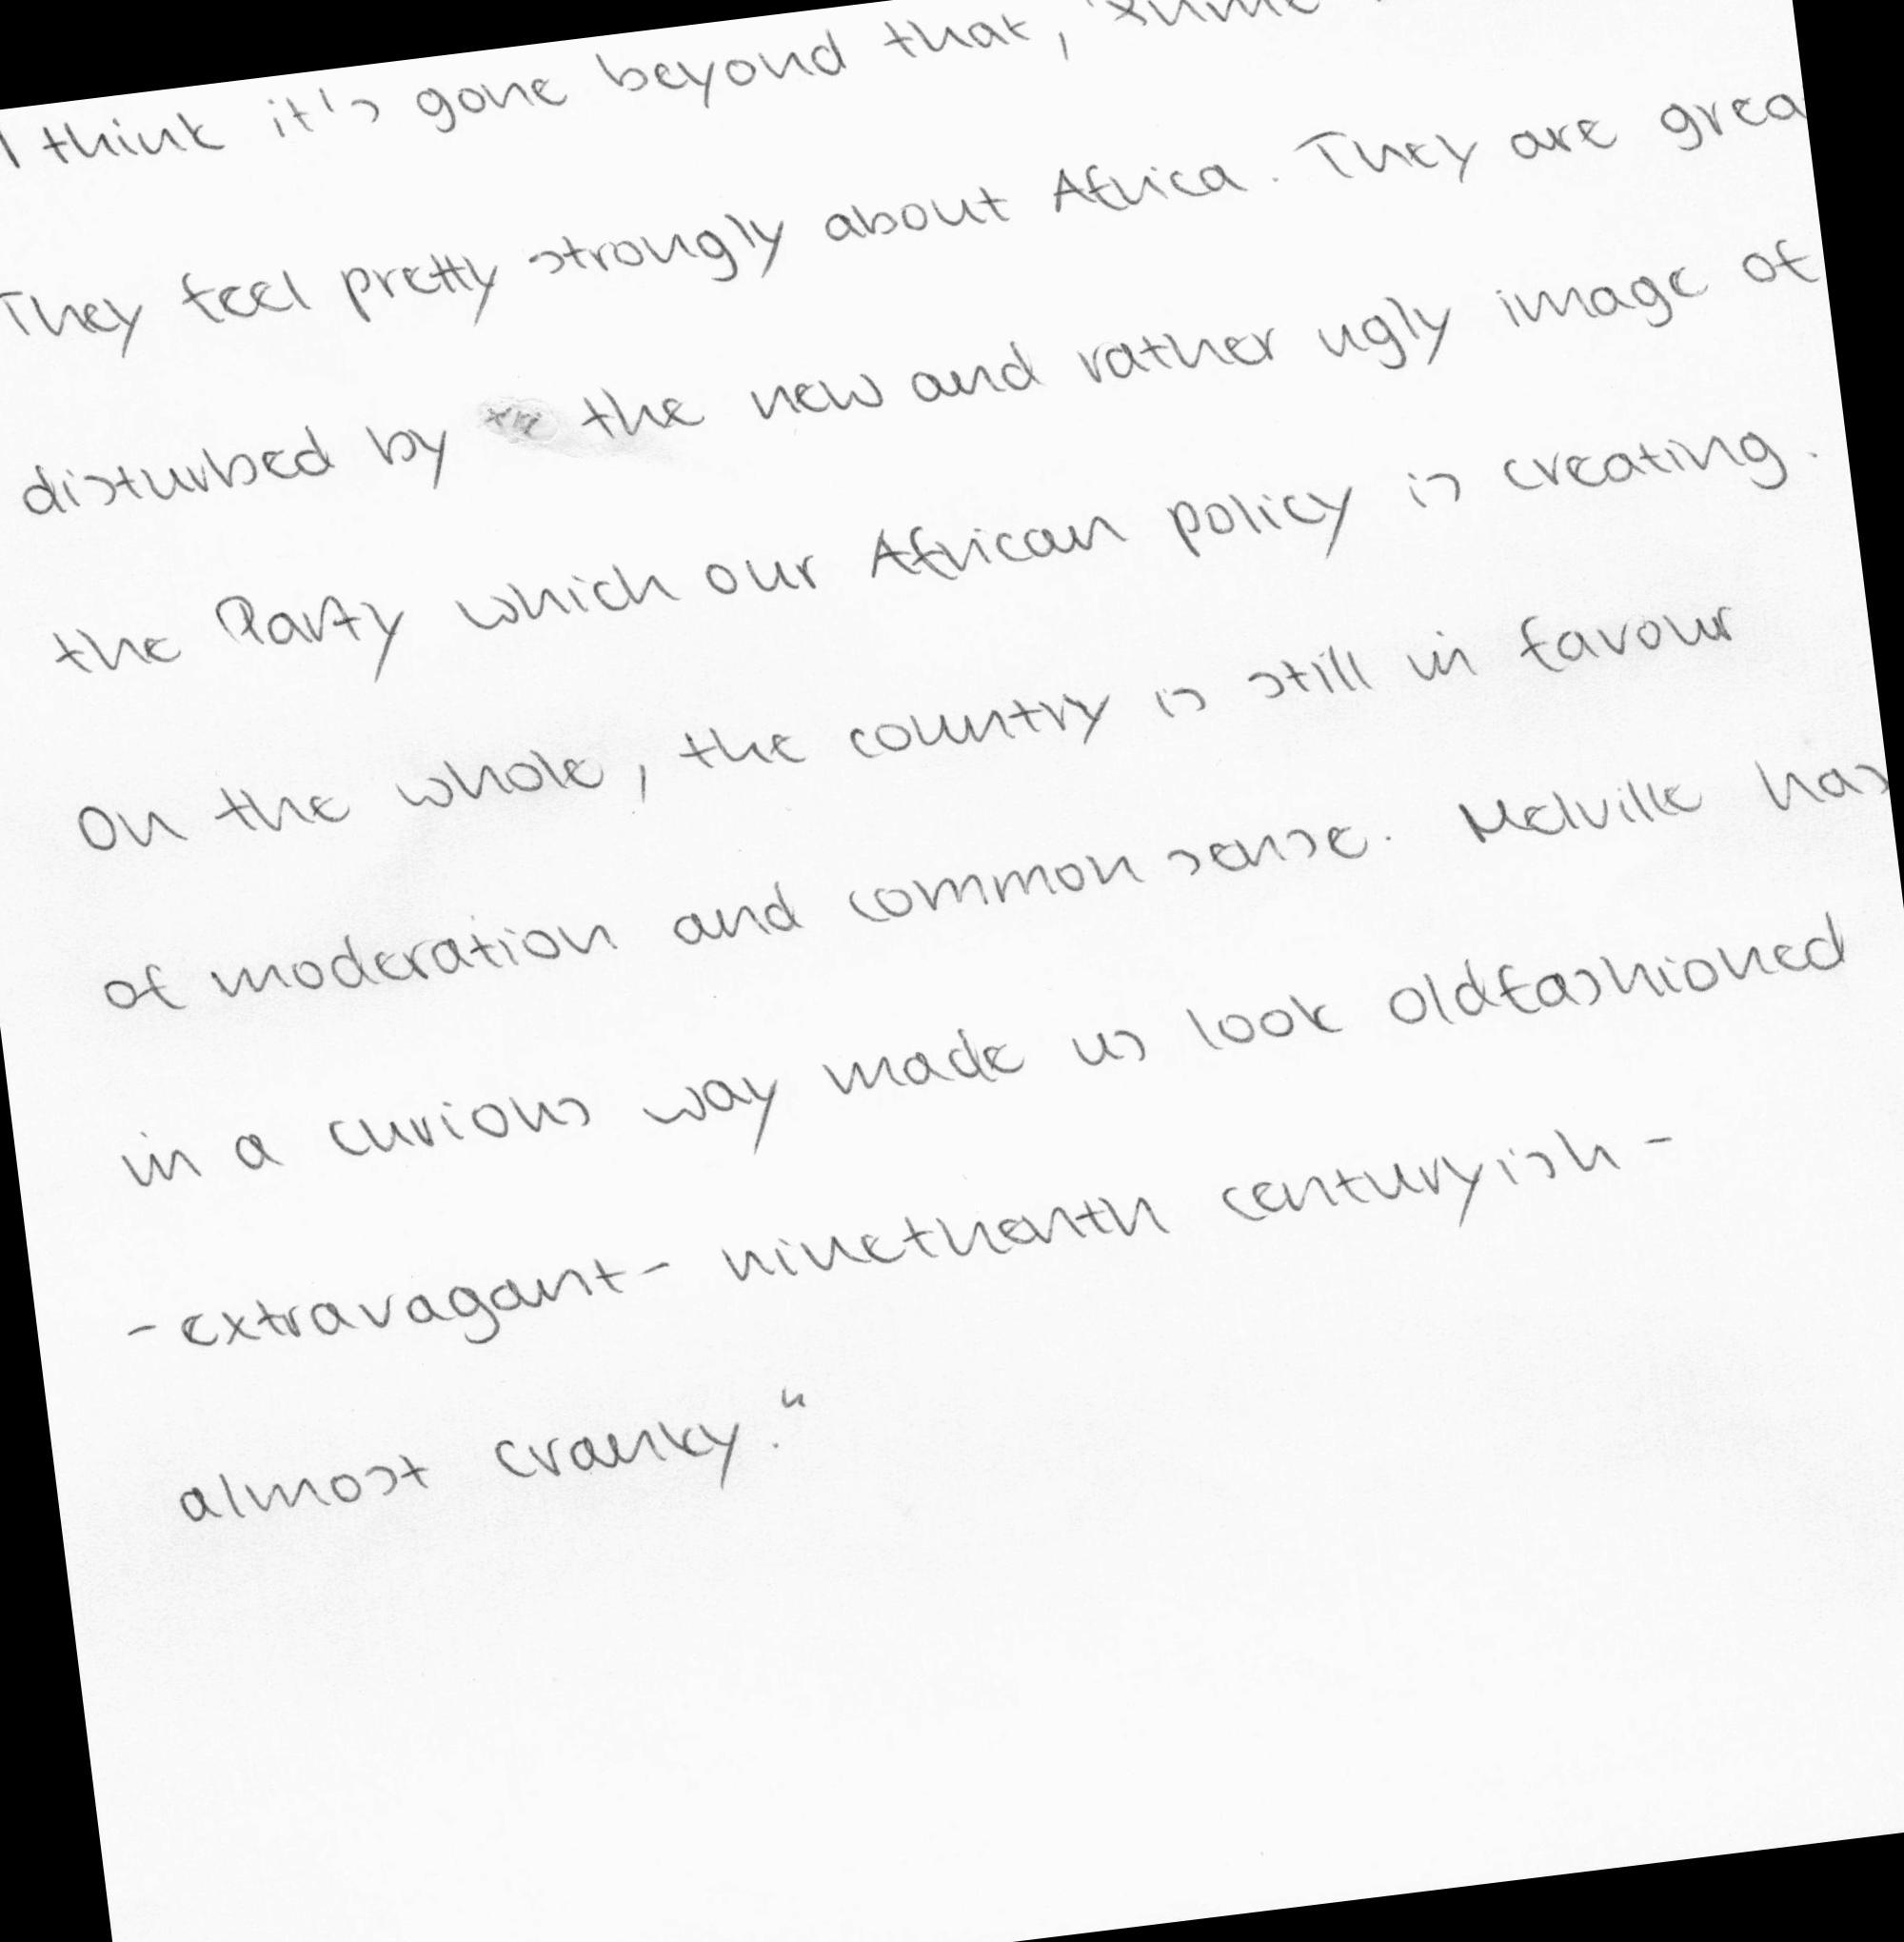 I think it's gone beyond that,
They feel pretty strongly about Africa. They are grea
disturbed by the new and rather ugly image of
the Party which our African policy is creating.
On the whole, the country is still in favour
of moderation and common sense. Melville has
in a curious way made us look oldfashioned
- extravagant - ninethenth centuryish -
almost cranky."